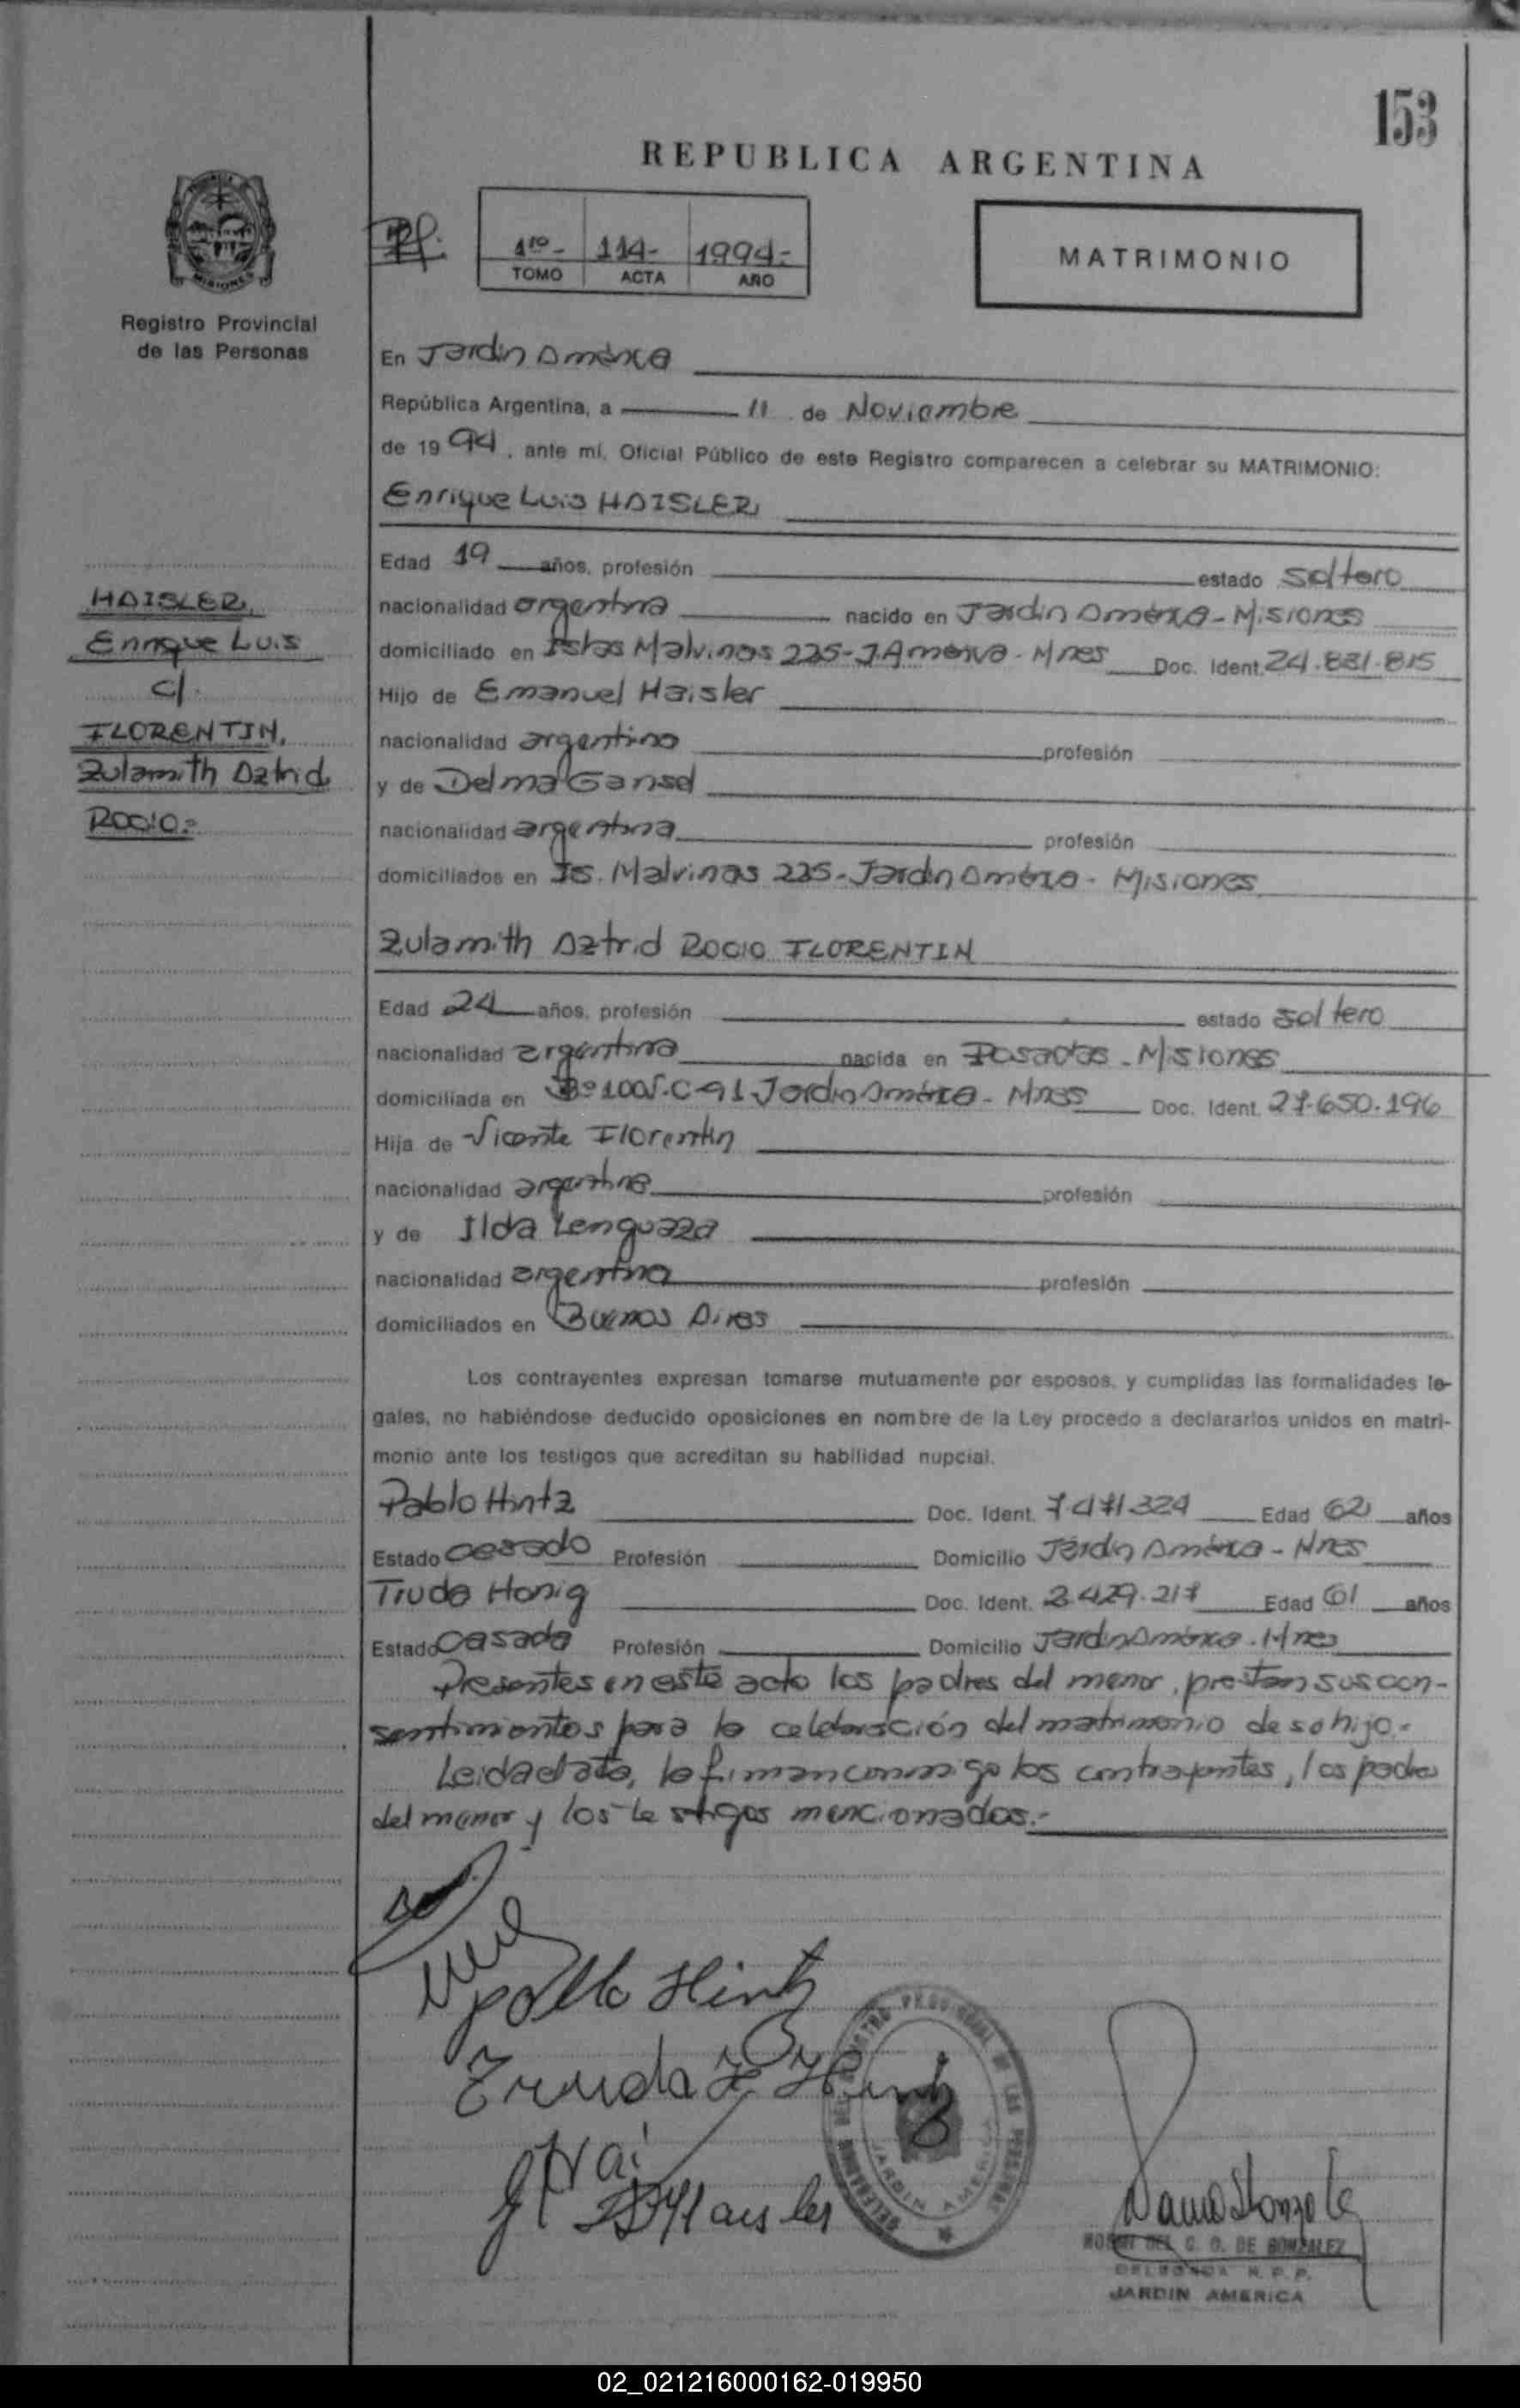 153
REPUBLICA ARGENTINA
MISIONES
Registro Provincial
de las Personas
1ro - 114- 1994-
TOMO ACTA AÑO
MATRIMONIO
En Jardín América
República Argentina, a 11 de Noviembre
de 1994, ante mí, Oficial Público de este Registro comparecen a celebrar su MATRIMONIO:
Enrique Luis HAISLER
Edad 19 años, profesión estado soltero
HAISLER,
Enrique Luis
c/
FLORENTIN,
Zulamith Aztrid
ROCIO.-
nacionalidad argentina nacido en Jardín América - Misiones
domiciliado en Islas Malvinas 225 - J América - Mnes Doc. Ident. 24.831.815
Hijo de Emanuel Haisler
nacionalidad argentino profesión
y de Delma Gansel
nacionalidad argentina profesión
domiciliados en Is. Malvinas 225 - Jardín América - Misiones
Zulamith Aztrid ROCIO FLORENTIN
Edad 24 años, profesión estado soltero
nacionalidad argentina nacida en Posadas - Misiones
domiciliada en Bº 100V. C-91 Jardín América - Mnes Doc. Ident. 27.650.196
Hija de Vicente Florentin
nacionalidad argentina profesión
y de Ilda Lenguaza
nacionalidad argentina profesión
domiciliados en Buenos Aires
Los contrayentes expresan tomarse mutuamente por esposos, y cumplidas las formalidades le-
gales, no habiéndose deducido oposiciones en nombre de la Ley procedo a declararlos unidos en matri-
monio ante los testigos que acreditan su habilidad nupcial.
Pablo Hintz Doc. Ident. 7.471.324 Edad 62 años
Estado casado Profesión Domicilio Jardín América - Mnes
Truda Honig Doc. Ident. 2.429.217 Edad 61 años
Estado casada Profesión Domicilio Jardín América - Mnes
Presentes en este acto los padres del menor, prestan sus con-
sentimientos para la celebración del matrimonio de su hijo.-
Leida el acta, la firman conmigo los contrayentes, los padres
del menor y los testigos mencionados.-
Pablo Hintz
Truda H Hintz
Haisler
JARDIN AMERICA
DE GONZALEZ
DELEGADA R. P. P.
JARDIN AMERICA
02_021216000162-019950